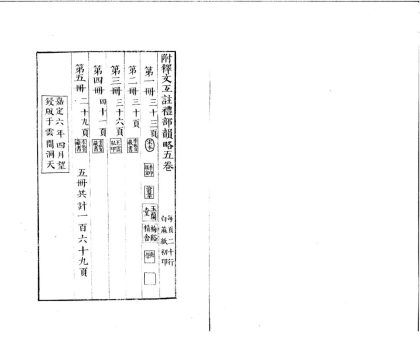 附釋文互註禮部韻略五卷
每頁二十行
白麻紙初印
第一冊三十三頁
宋本
第二冊三十頁
第三冊三十六頁
第四冊四十一頁
第五冊二十九頁
五冊共計一百六十九頁
嘉定六年四月望
鋟版于雲間洞天